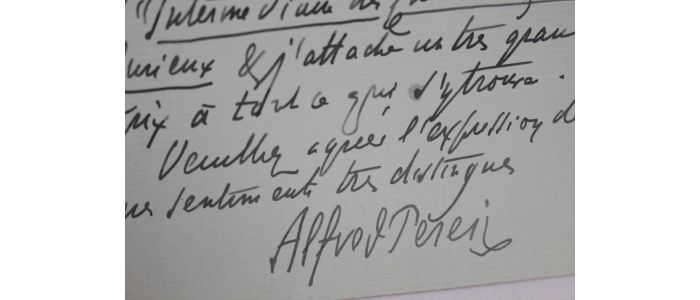 "Intermédiaire des
urieux & j'attache un très gran
prix à tout ce qui s'y trouve.
Veuillez agréer l'expression d
mes sentiments très distingués
Alfred Pereire